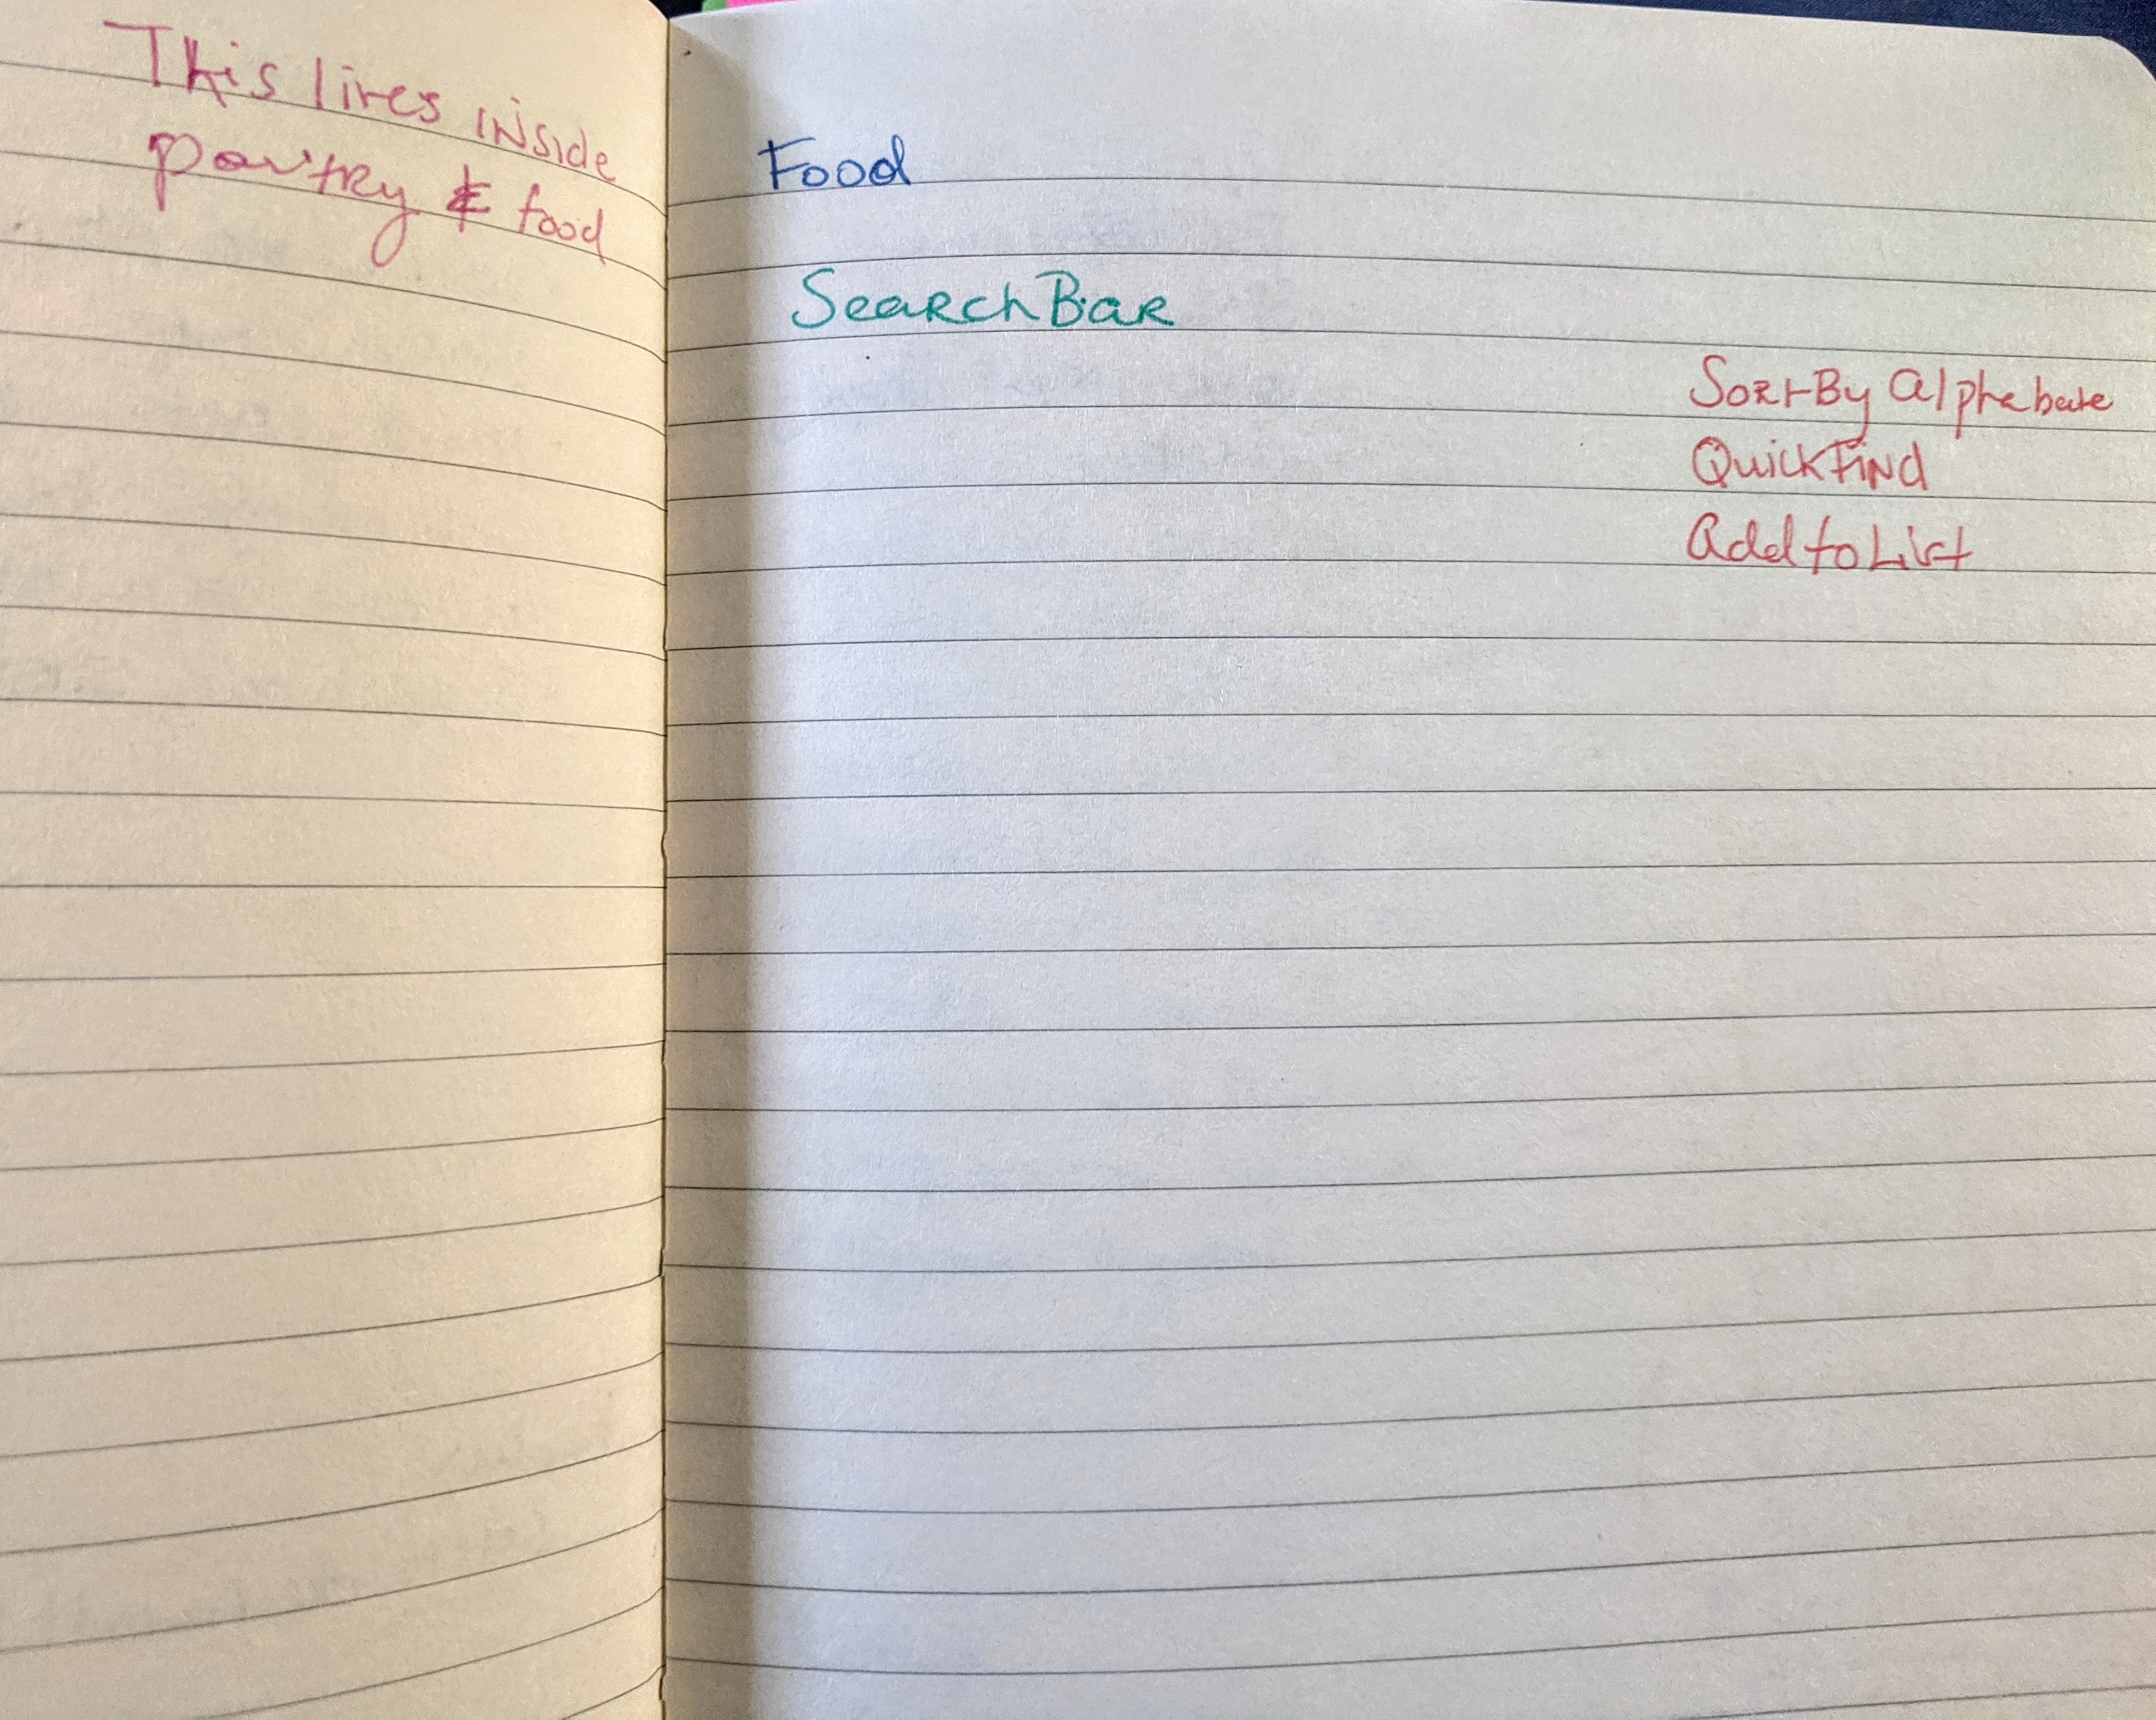 This lives inside
pantry & food
Food
SearchBar
Sort By Alphabate
QuickFind
Add to List